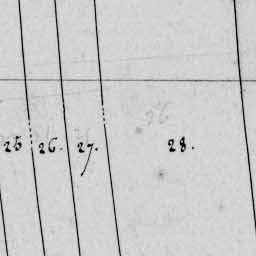 25 26. 27. 28.